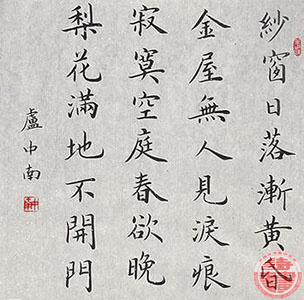 紗窗日落漸黃昏
金屋無人見淚痕
寂寞空庭春欲晚
梨花滿地不開門
盧中南